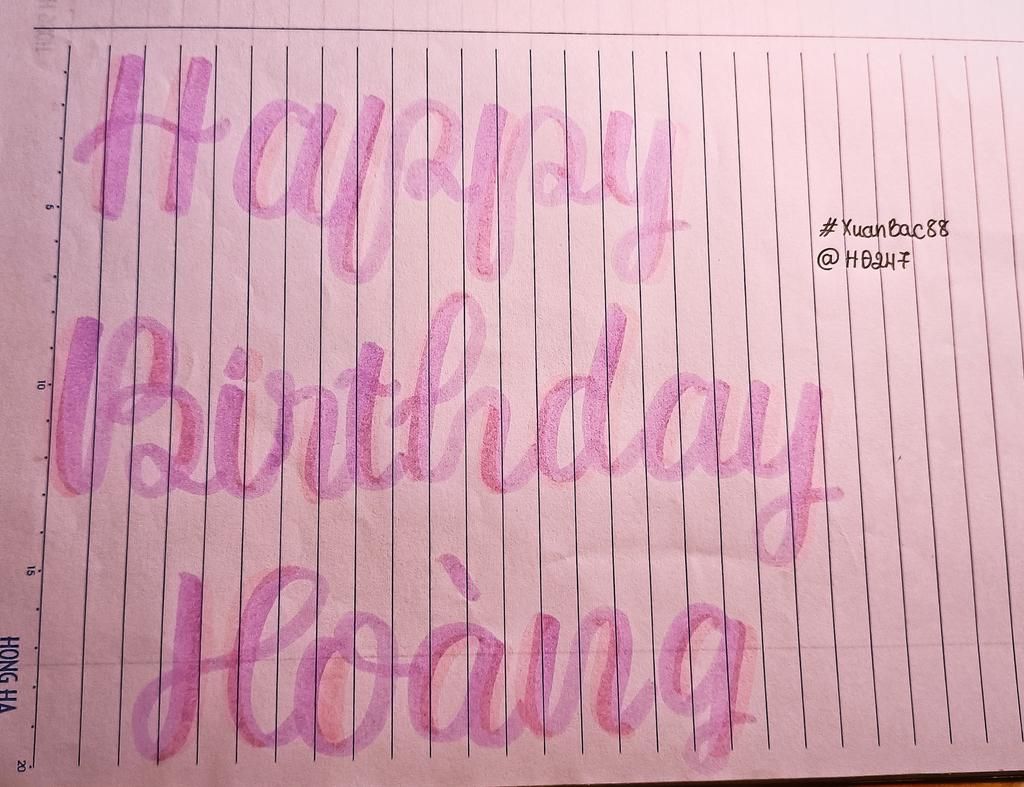 Happy
#XuanBac88
@HĐ247
Birthday
Hoàng
HONG HA
5
10
15
20